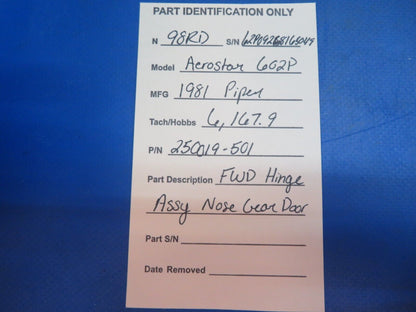 PART IDENTIFICATION ONLY
N 98RD S/N
Model Aerostar 602P
MFG 1981 Piper
Tach/Hobbs 6,167.9
P/N 250019-501
Part Description FWD Hinge
Assy Nose Gear Door
Part S/N
Date Removed